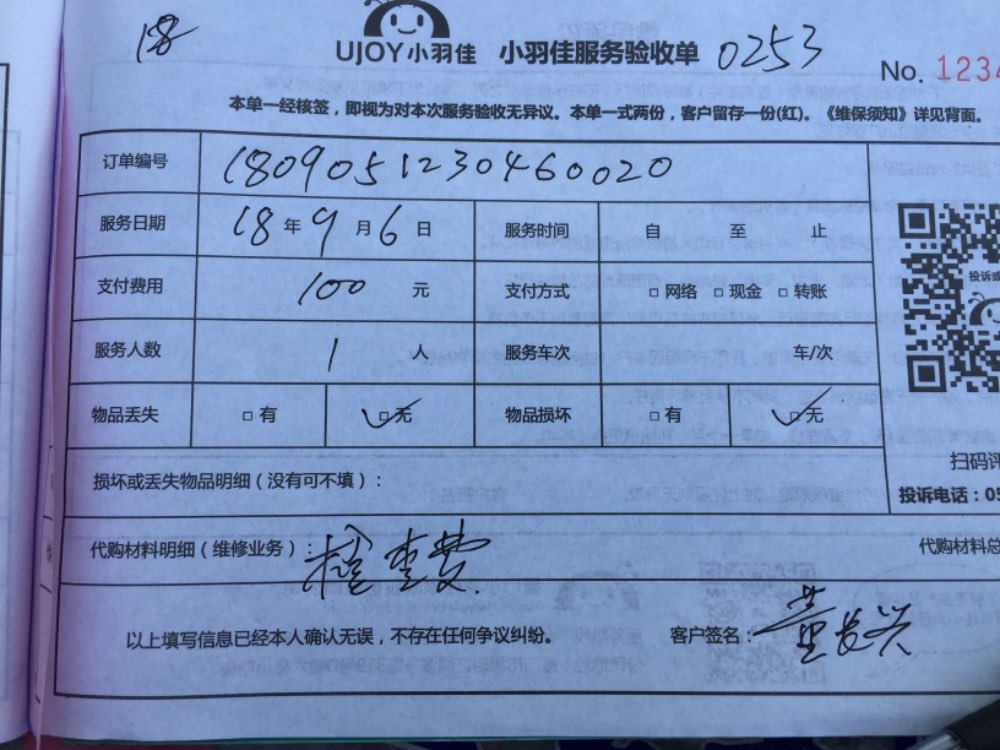 18
UJOY小羽佳 小羽佳服务验收单 0253
No. 1234
本单一经核签，即视为对本次服务验收无异议。本单一式两份，客户留存一份(红)。《维保须知》详见背面。
订单编号 1809051230460020
服务日期 18 年 9 月 6 日 服务时间 自 至 止
投诉或
支付费用 100 元 支付方式 □ 网络 □ 现金 □ 转账
服务人数 1 人 服务车次 车/次
物品丢失 □ 有 □ 无 物品损坏 □ 有 □ 无
扫码评
损坏或丢失物品明细（没有可不填）：
投诉电话：05
代购材料明细（维修业务）：检查费. 代购材料总
以上填写信息已经本人确认无误，不存在任何争议纠纷。 客户签名：董长兴